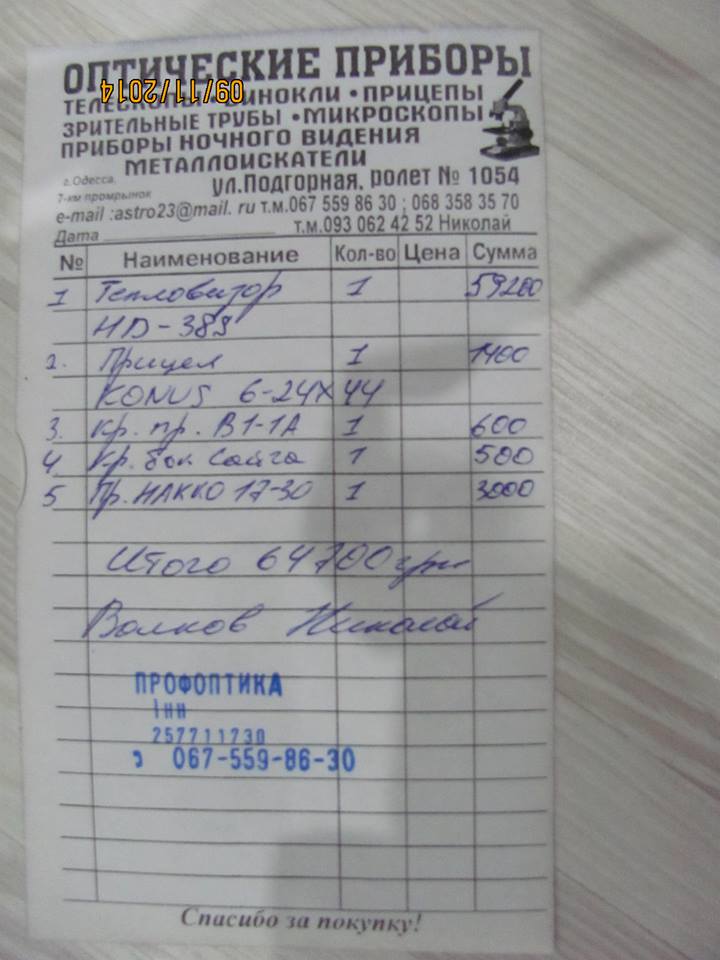 ОПТИЧЕСКИЕ ПРИБОРЫ
09/11/2014
ТЕЛЕСКОПЫ • БИНОКЛИ • ПРИЦЕПЫ
ЗРИТЕЛЬНЫЕ ТРУБЫ • МИКРОСКОПЫ
ПРИБОРЫ НОЧНОГО ВИДЕНИЯ
МЕТАЛЛОИСКАТЕЛИ
г.Одесса,
7-км промрынок
ул.Подгорная, ролет № 1054
e-mail :astro23@mail. ru т.м.067 559 86 30 ; 068 358 35 70
т.м.093 062 42 52 Николай
Дата
№ Наименование Кол-во Цена Сумма
1 Тепловизор 1 59200
HD-38S
2. Прицел 1 1400
KONUS 6-24X44
3. Кр. пр. В1-1А 1 600
4. Кр. бок Сайга 1 500
5 Пр. НАККО 17-30 1 3000
Итого 64700 грн
Волков Николай
ПРОФОПТИКА
Інн
257711730
067-559-86-30
Спасибо за покупку!